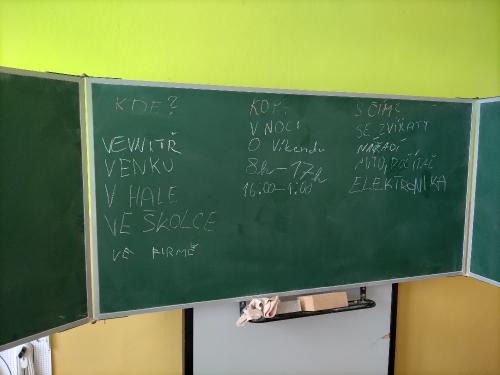 KDE?
VEVNITŘ
VENKU
V HALE
VE ŠKOLCE
VE FIRMĚ
KDY?
V NOCI
O Víkendu
8h - 17h
16:00-1:00
S ČÍM?
SE ZVÍŘATY
NÁŘADÍ
AUTO, POČÍTAČ
ELEKTRONIKA